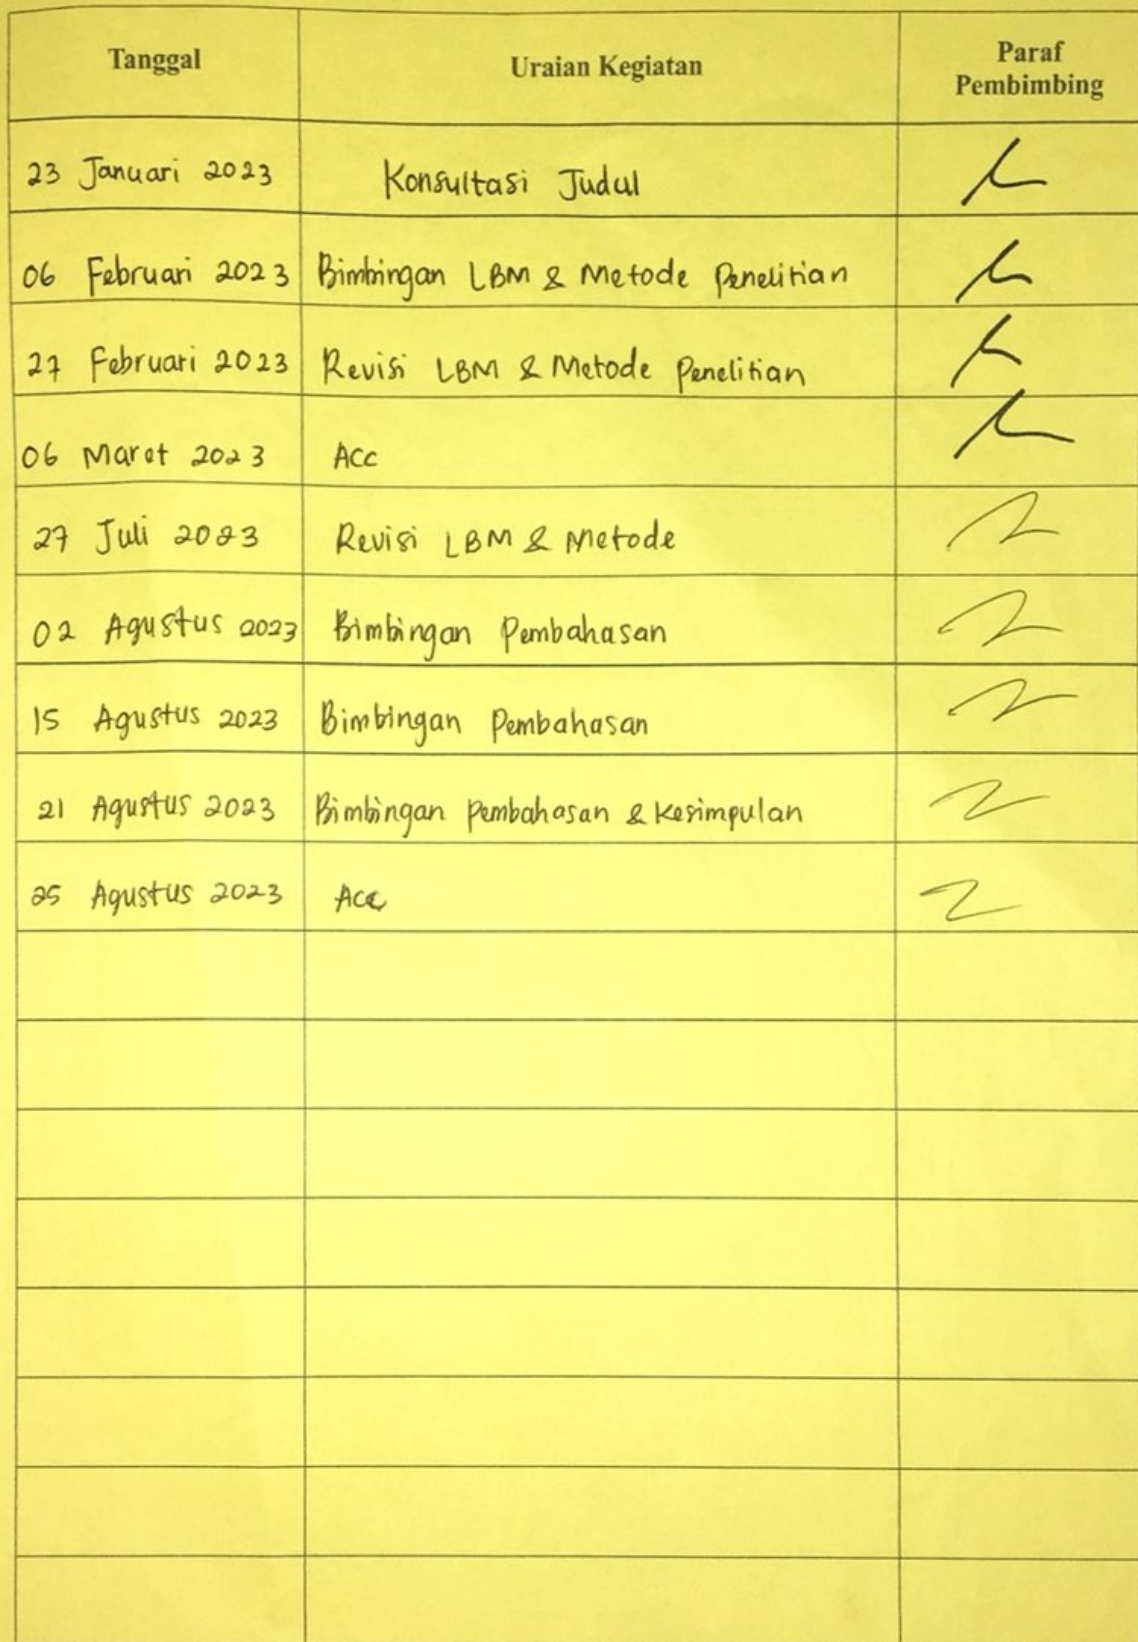 Tanggal Uraian Kegiatan Paraf Pembimbing
23 Januari 2023 Konsultasi Judul
06 Februari 2023 Bimbingan LBM & Metode Penelitian
27 Februari 2023 Revisi LBM & Metode Penelitian
06 Maret 2023 Acc
27 Juli 2023 Revisi LBM & Metode
02 Agustus 2023 Bimbingan Pembahasan
15 Agustus 2023 Bimbingan Pembahasan
21 Agustus 2023 Bimbingan Pembahasan & Kesimpulan
25 Agustus 2023 Acc